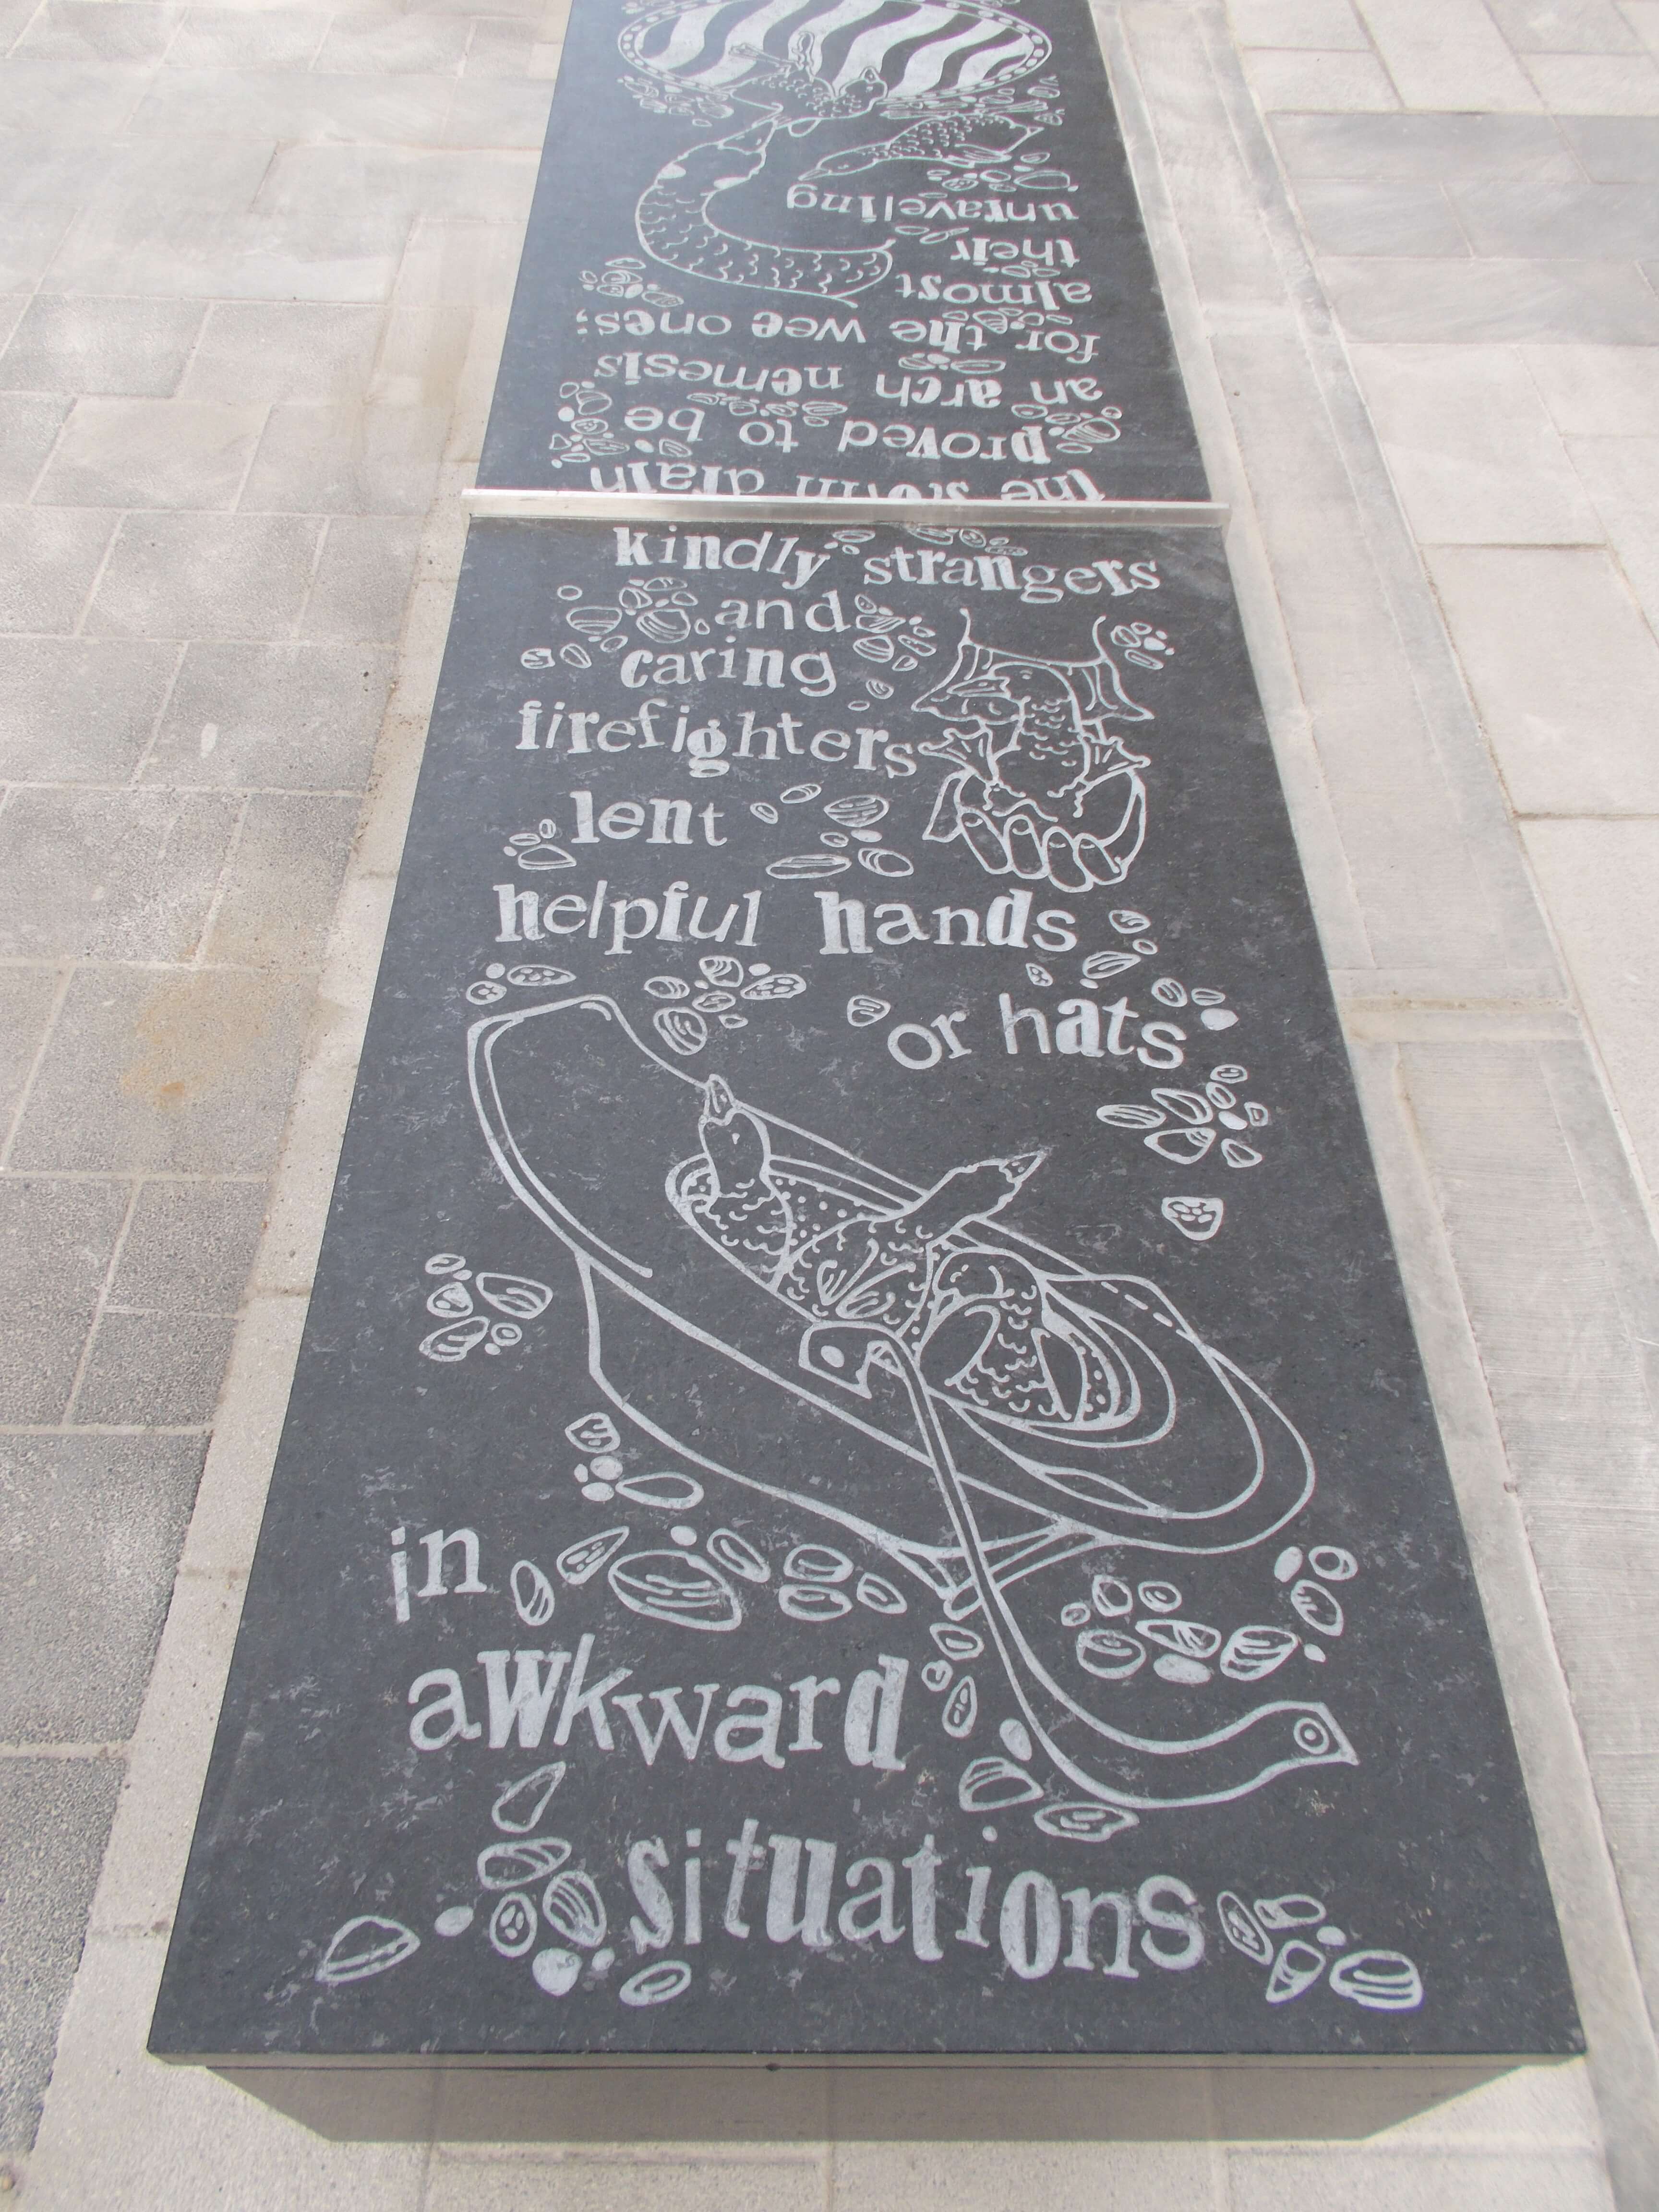 kindly strangers
and
caring
firefighters
lent
helpful hands
or hats
in
awkward
situations
the storm drain
proved to be
an arch nemesis
for the wee ones;
almost
their
unraveling